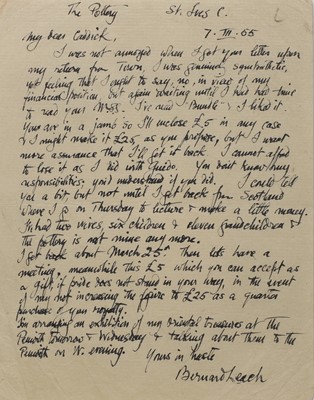 The Pottery St. Ives C.
My dear Caddick, 7-III-65
I was not annoyed when I got your letter upon
my return from Town, I was genuinely sympathetic,
yet feeling that I ought to say, no, in view of my
financial position, but again waiting until I had had time
to read your MSS. I've read "Bundle" & I liked it.
Your are in a jamb so I'll enclose £5 in any case
& I might make it £25 as you propose, but I want
more assurance that I'll get it back. I cannot afford
to lose it as I did with Guido. You don't know my
responsibilities; you'd understand if you did. I could tell
you a bit, but not until I get back from Scotland
where I go on Thursday to lecture & make a little money.
I've had two wives, six children & eleven grandchildren &
the pottery is not mine any more.
I get back about March 25th. Then lets have a
meeting. meanwhile this £5 which you can accept as
a gift, if pride does not stand in your way, in the event
of my not increasing the figure to £25 as a quarter
purchase of your royalty.
I'm arranging an exhibition of my oriental treasures at the
Penwith tomorrow & Wednesday & talking about them to the
Penwith on W. evening. Yours in haste
Bernard Leach